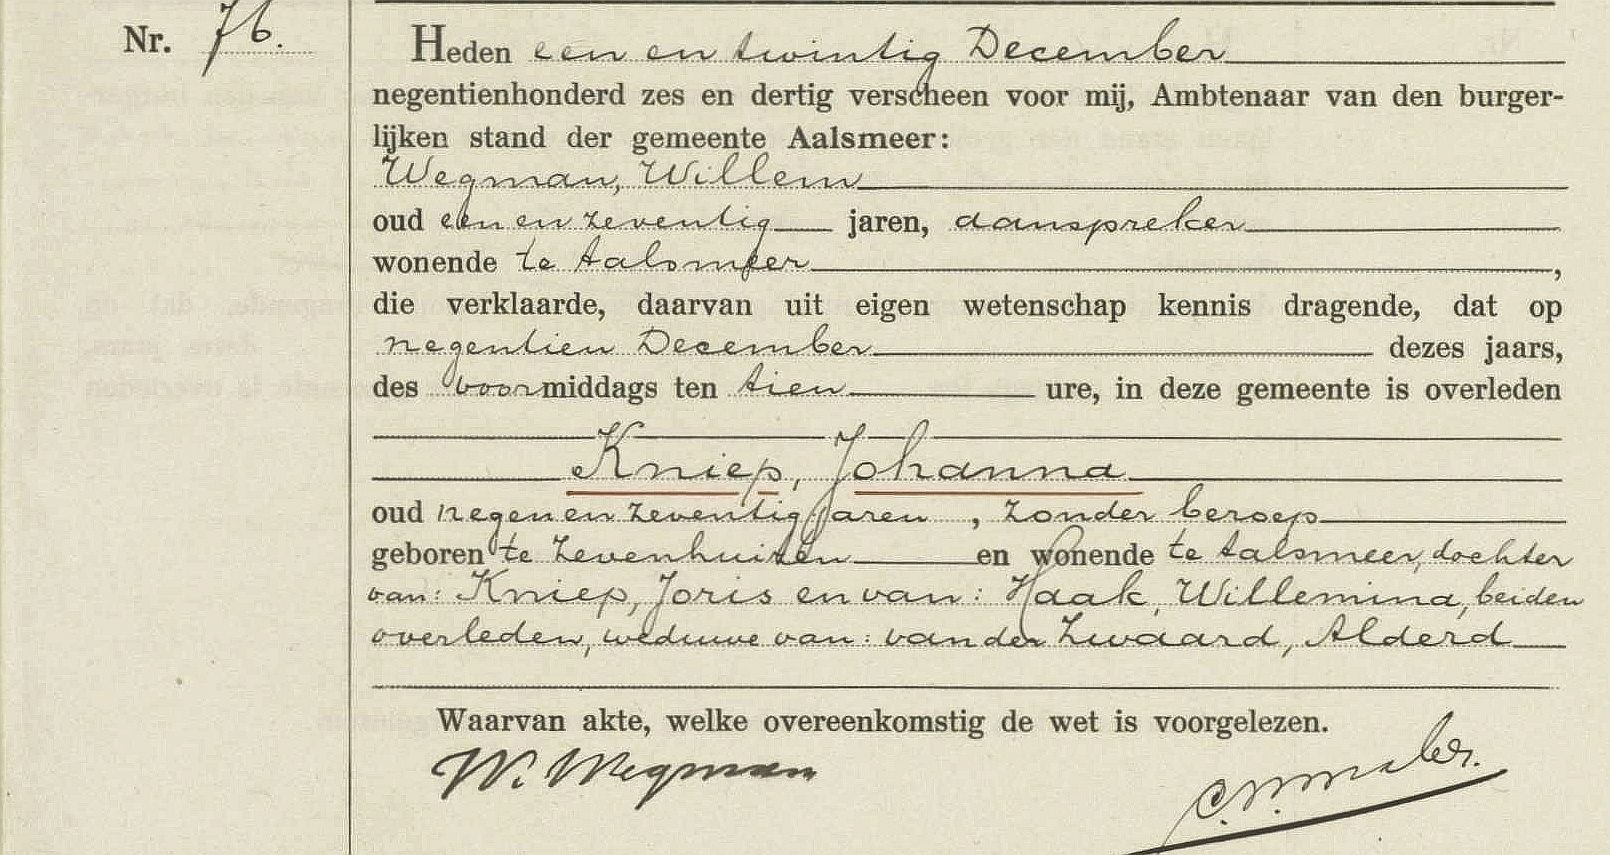 Nr. 76.
Heden een en twintig December
negentienhonderd zes en dertig verscheen voor mij, Ambtenaar van den burger-
lijken stand der gemeente Aalsmeer:
Wegman, Willem
oud een en zeventig jaren, aanspreker
wonende te Aalsmeer,
die verklaarde, daarvan uit eigen wetenschap kennis dragende, dat op
negentien December dezes jaars,
des voormiddags ten tien ure, in deze gemeente is overleden
Kniep, Johanna
oud negen en zeventig jaren, zonder beroep
geboren te Zevenhuizen en wonende te Aalsmeer, dochter
van: Kniep, Joris en van: Haak, Willemina, beiden
overleden, weduwe van: van der Zwaard, Alderd
Waarvan akte, welke overeenkomstig de wet is voorgelezen.
W. Wegman